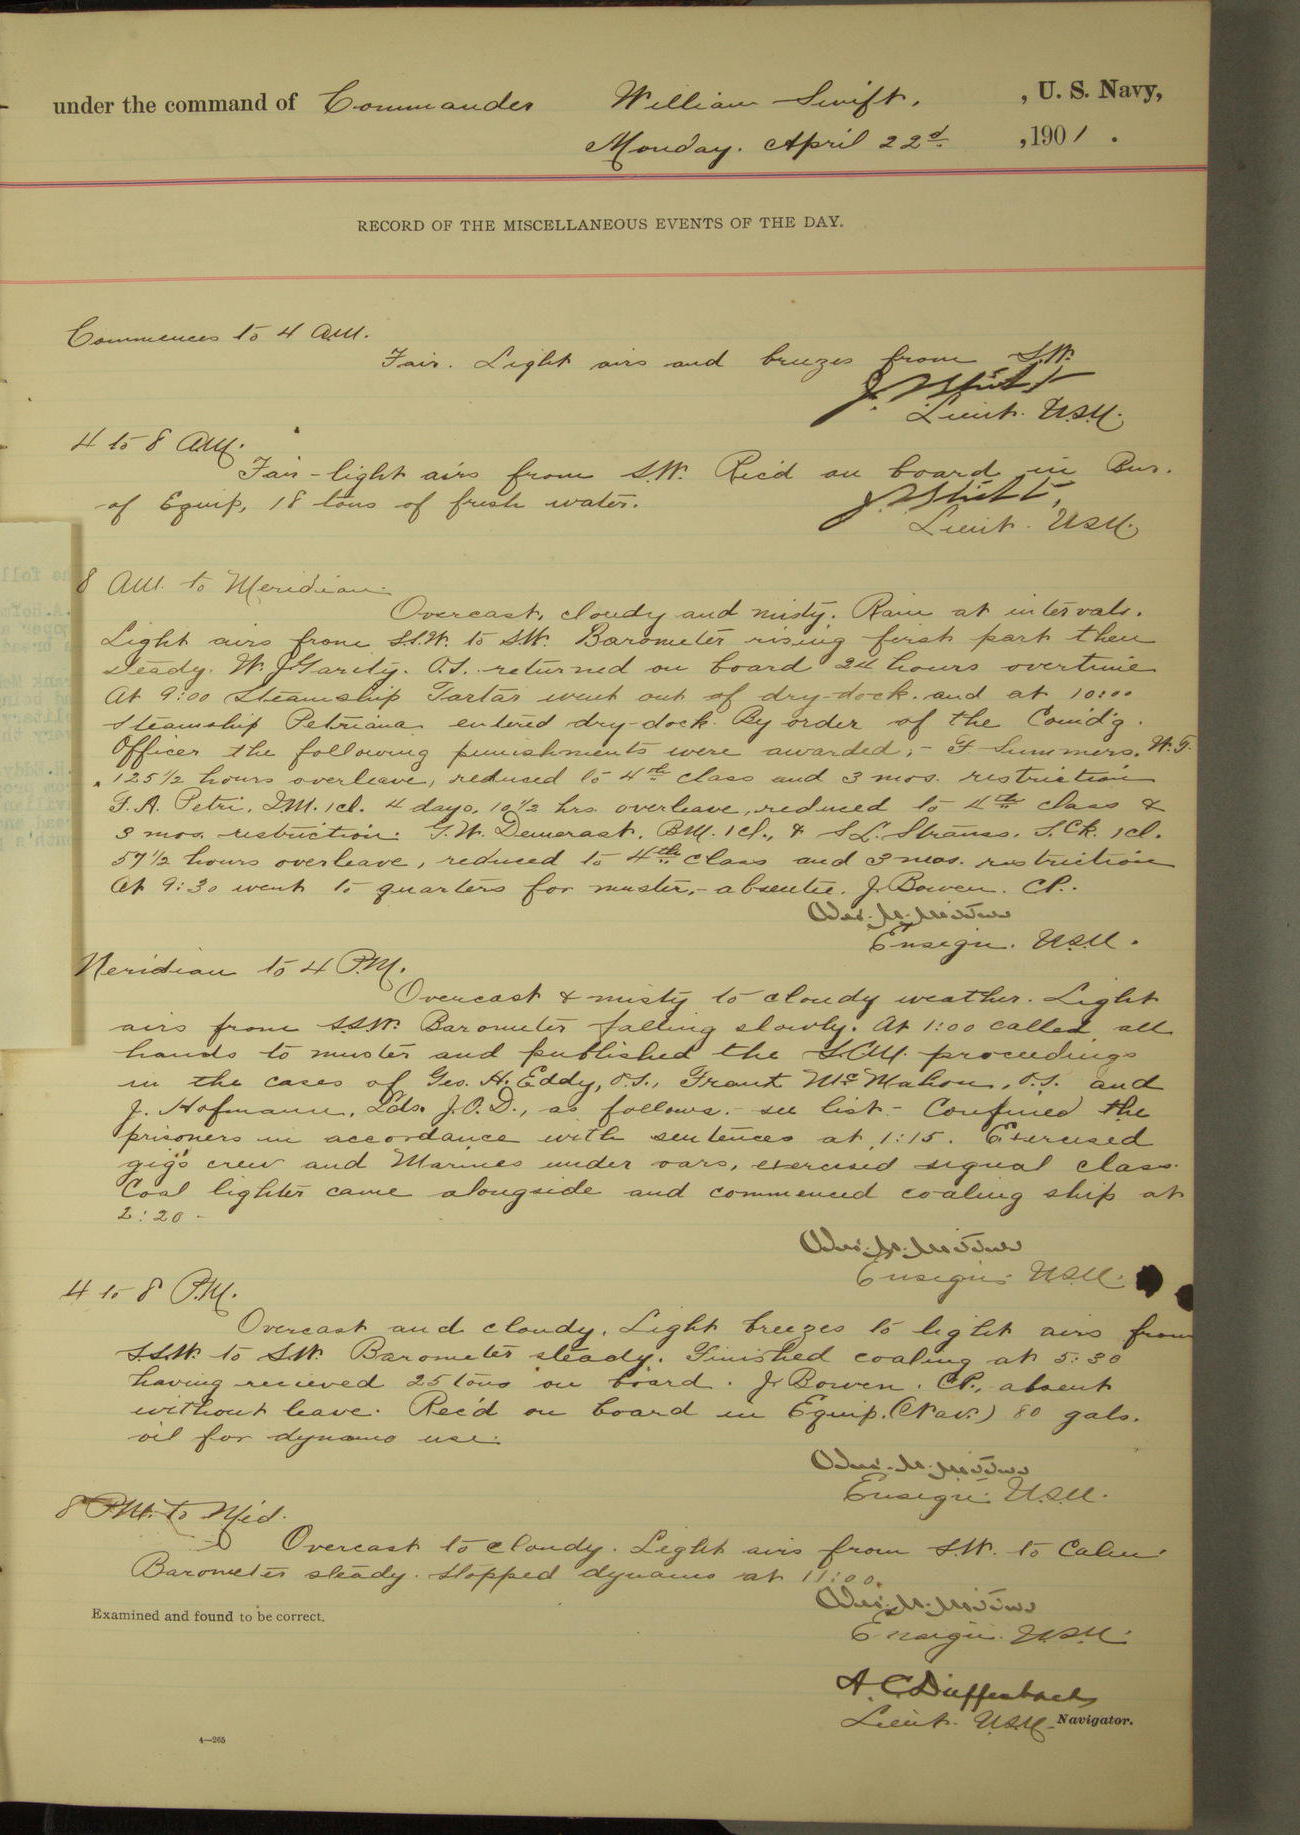 under the command of Commander William Swift, , U. S. Navy,
Monday. April 22d , 1901.
RECORD OF THE MISCELLANEOUS EVENTS OF THE DAY.
Commences to 4 A.M.
Fair. Light airs and breezes from S.W.
Lieut. U.S.N.
4 to 8 A.M.
Fair - light airs from S.W. Rec'd on board in Bur.
of Equip, 18 tons of fresh water.
Lieut. U.S.N.
8 A.M. to Meridian.
Overcast, cloudy and misty. Rain at intervals.
Light airs from S.S.W. to S.W. Barometer rising first part then
steady. W. J. Garity. O.S. returned on board 24 hours overtime
At 9:00 Steamship Tartar went out of dry-dock. and at 10:00
Steamship Petriana entered dry-dock. By order of the Com'd'g.
Officer the following punishments were awarded; - F. Summers. W.T.
125 1/2 hours overleave, reduced to 4th class and 3 mos. restriction
F. A. Petri, 1cl. 4 days, 10 1/2 hrs. overleave, reduced to 4th class &
3 mos. restriction. G. W. Demerast, B.M. 1cl., & S. L. Strauss. S.Ck. 1cl.
57 1/2 hours overleave, reduced to 4th class and 3 mos. restriction
At 9:30 went to quarters for muster, - absentee. J. Bowen. C.P.
Ensign. U.S.N.
Meridian to 4 P.M.
Overcast & misty to cloudy weather. Light
airs from S.S.W. Barometer falling slowly. At 1:00 called all
hands to muster and published the S.C.M. proceedings
in the cases of Geo. H. Eddy, O.S., Frank McMahon, O.S. and
J. Hofmann, Lds. J.O.D., as follows. - see list. - Confined the
prisoners in accordance with sentences at 1:15. Exercised
gig's crew and Marines under oars, exercised signal class.
Coal lighter came alongside and commenced coaling ship at
2:20 -
Ensign. U.S.N.
4 to 8 P.M.
Overcast and cloudy. Light breezes to light airs from
S.S.W. to S.W. Barometer steady. Finished coaling at 5:30
having recieved 25 tons on board. J. Bowen. C.P., absent
without leave. Rec'd on board in Equip. (Nav.) 80 gals.
oil for dynamo use.
Ensign. U.S.N.
8 P.M. to Mid.
Overcast to cloudy. Light airs from S.W. to Calm.
Barometer steady. Stopped dynamo at 11:00.
Examined and found to be correct.
Ensign. U.S.N.
A. C. Dieffenbach
Lieut. U.S.N. Navigator.
4—265